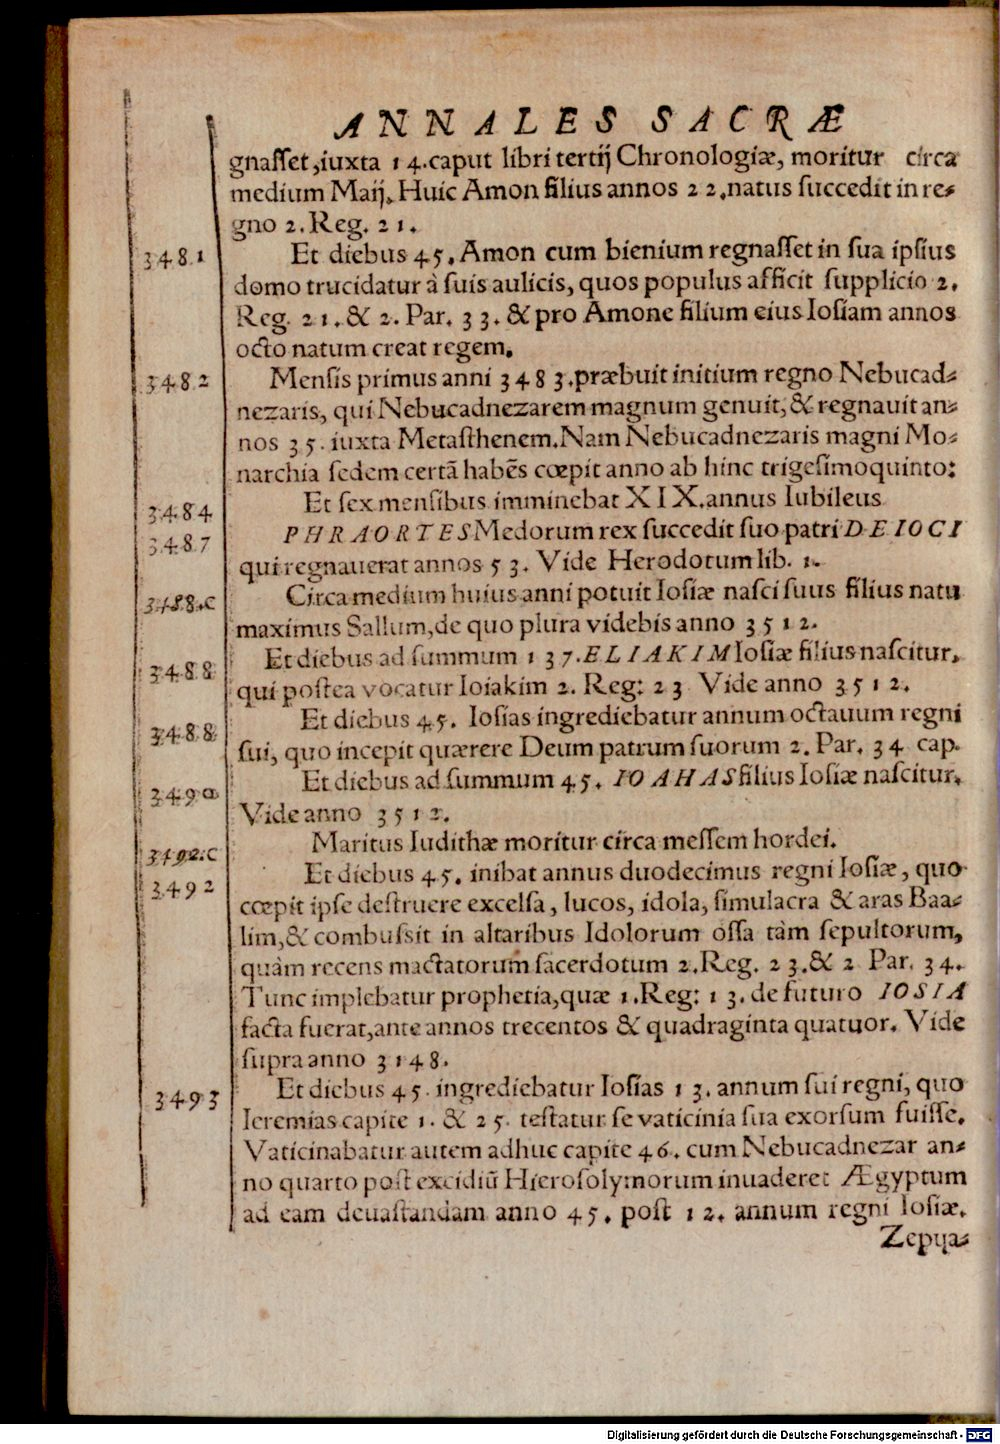 ANNALES SACRÆ
gnaſſet,iuxta 14.caput libri tertij Chronologiæ, moritur circa
medium Maij. Huic Amon filius annos 22.natus ſuccedit in re⸗
gno 2.Reg. 21.
3481 Et diebus 45. Amon cum bienium regnaſſet in ſua ipſius
domo trucidatur à ſuis aulicis, quos populus afficit ſupplicio 2.
Reg. 21.& 2. Par. 33. & pro Amone filium eius Ioſiam annos
octo natum creat regem.
3482 Menſis primus anni 3483.præbuit initium regno Nebucad⸗
nezaris, qui Nebucadnezarem magnum genuit, & regnauit an⸗
nos 35. iuxta Metaſthenem. Nam Nebucadnezaris magni Mo⸗
narchia ſedem certã habẽs cœpit anno ab hinc trigeſimoquinto:
3484 Et ſex menſibus imminebat XIX.annus Iubileus
3487 PHRAORTES Medorum rex ſuccedit ſuo patri DEIOCI
qui regnauerat annos 53. Vide Herodotum lib. 1.
3488.c Circa medium huius anni potuit Ioſiæ naſci ſuus filius natu
maximus Sallum, de quo plura videbis anno 3512.
3488 Et diebus ad ſummum 137. ELIAKIM Ioſiæ filius naſcitur,
qui poſtea vocatur Ioiakim 2. Reg: 23 Vide anno 3512.
3488 Et diebus 45. Ioſias ingrediebatur annum octauum regni
ſui, quo incepit quærere Deum patrum ſuorum 2. Par. 34 cap.
3490 Et diebus ad ſummum 45. IOAHAS filius Ioſiæ naſcitur.
Vide anno 3512.
3492.c Maritus Iudithæ moritur circa meſſem hordei.
3492 Et diebus 45. inibat annus duodecimus regni Ioſiæ, quo
cœpit ipſe deſtruere excelſa, lucos, idola, ſimulacra & aras Baa⸗
lim,& combuſsit in altaribus Idolorum oſſa tàm ſepultorum,
quàm recens mactatorum ſacerdotum 2.Reg. 23.& 2 Par. 34.
Tunc implebatur prophetia,quæ 1.Reg: 13. de futuro IOSIA
facta fuerat,ante annos trecentos & quadraginta quatuor. Vide
ſupra anno 3148.
3493 Et diebus 45. ingrediebatur Ioſias 13. annum ſui regni, quo
Ieremias capite 1. & 25. teſtatur ſe vaticinia ſua exorſum fuiſſe.
Vaticinabatur autem adhuc capite 46. cum Nebucadnezar an⸗
no quarto poſt excidiũ Hieroſolymorum inuaderet Ægyptum
ad eam deuaſtandam anno 45. poſt 12. annum regni Ioſiæ.
Zepha⸗
Digitalisierung gefördert durch die Deutsche Forschungsgemeinschaft - DFG